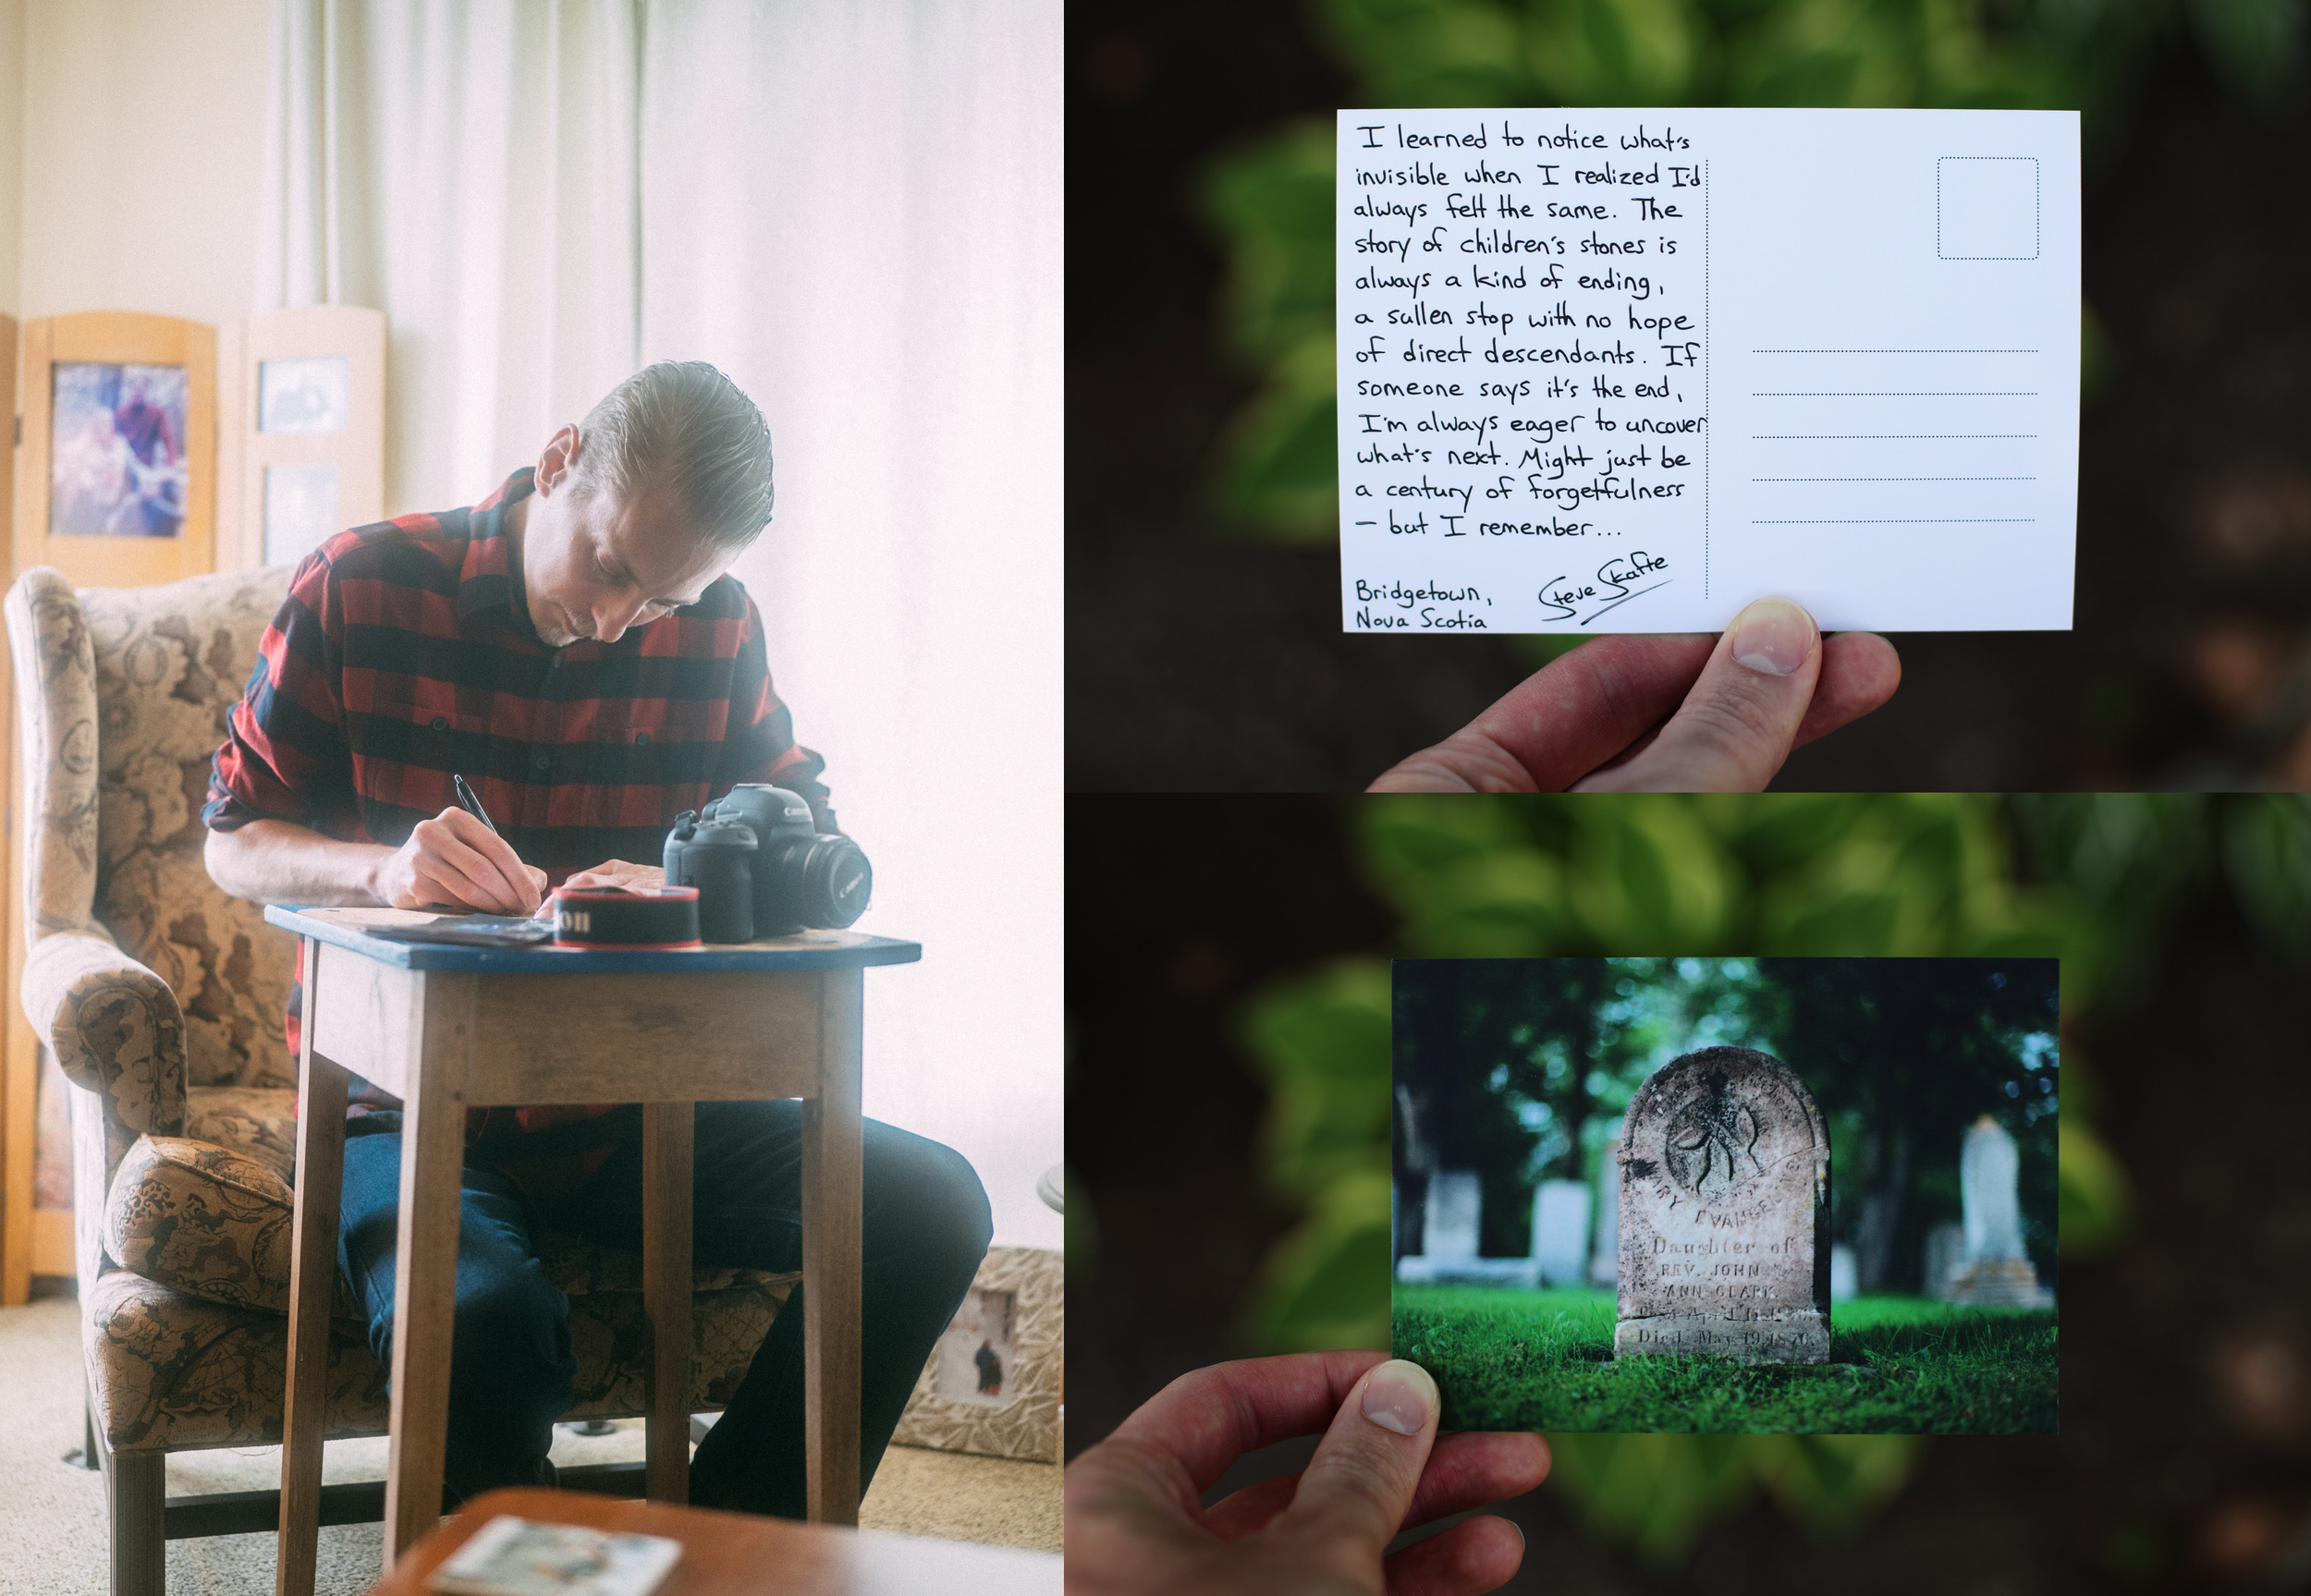 I learned to notice what's
invisible when I realized I'd
always felt the same. The
story of children's stones is
always a kind of ending,
a sullen stop with no hope
of direct descendants. If
someone says it's the end,
I'm always eager to uncover
what's next. Might just be
a century of forgetfulness
— but I remember...
Bridgetown,
Nova Scotia
Steve Skafte
Canon
Canon
on
Daughter of
REV. JOHN
ANN CLARK
April
Died May 19, 1876